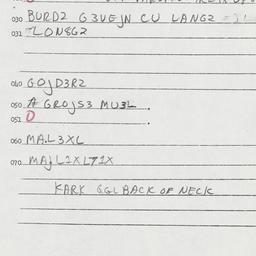 030 BURD2 G3VEJN CU LANG2
031 ZLON8G2
040 GOJD3R2
050 A GROJS3 MU3L .
051 O .
060 MA.L3XL
070 MAJL2XLT1X
KARK GGL BACK OF NECK